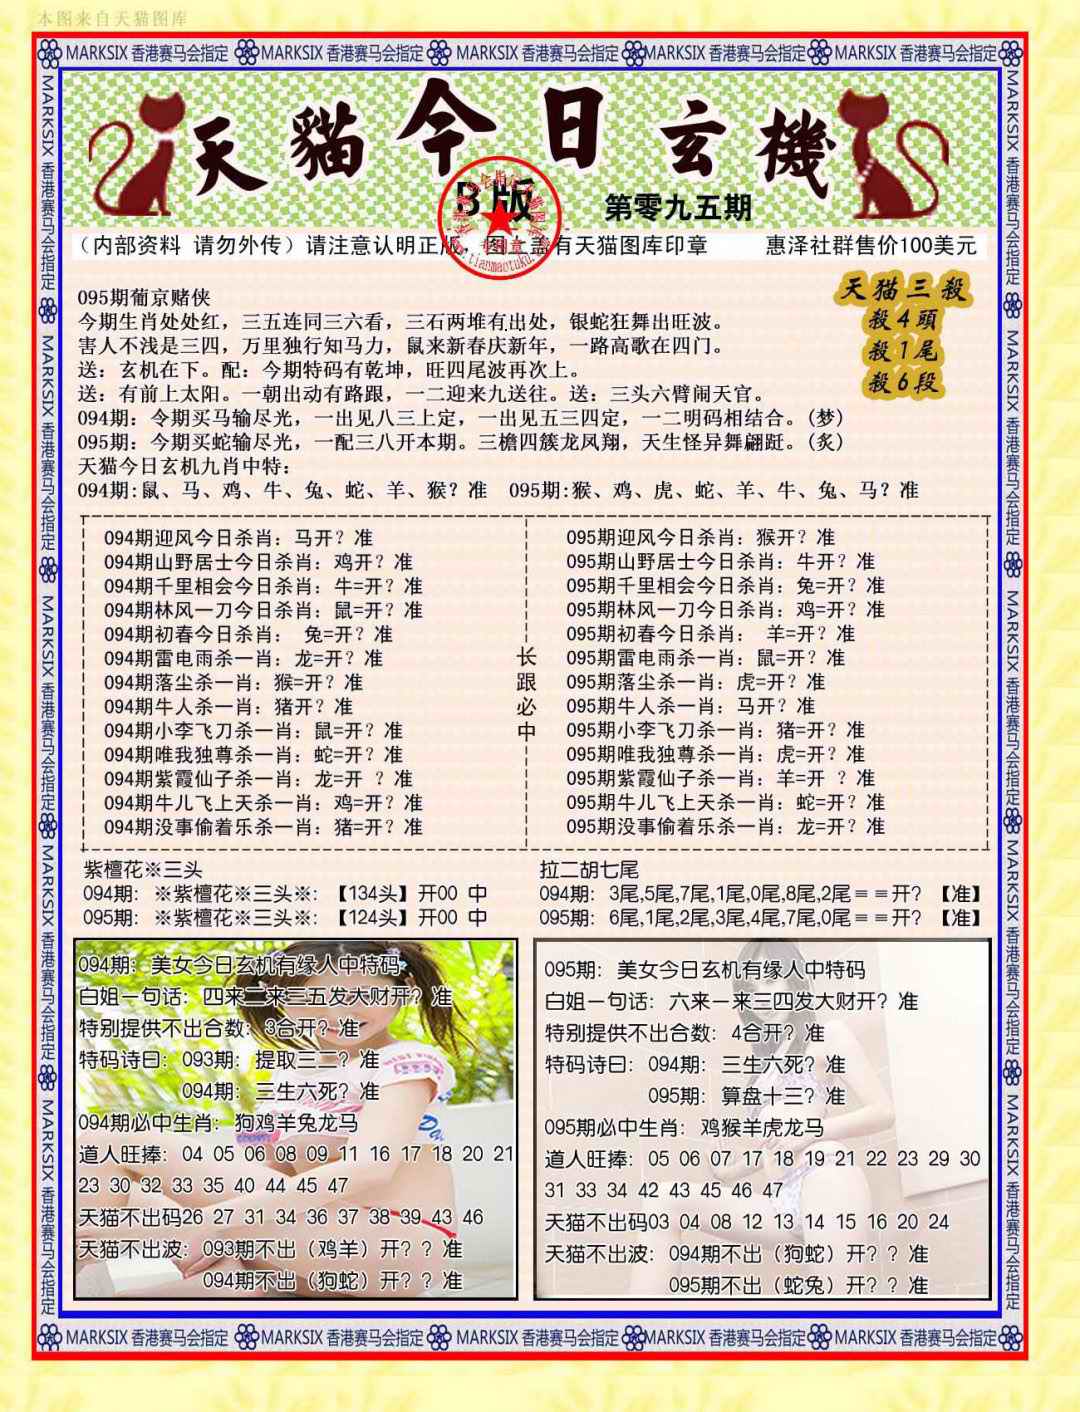 本图来自天猫图库
MARKSIX 香港赛马会指定 MARKSIX 香港赛马会指定 MARKSIX 香港赛马会指定 MARKSIX 香港赛马会指定 MARKSIX 香港赛马会指定
天貓今日玄機
B版
第零九五期
(内部资料 请勿外传)请注意认明正版,图上盖有天猫图库印章 惠泽社群售价100美元
095期葡京赌侠
今期生肖处处红,三五连同三六看,三石两堆有出处,银蛇狂舞出旺波。
害人不浅是三四,万里独行知马力,鼠来新春庆新年,一路高歌在四门。
送:玄机在下。配:今期特码有乾坤,旺四尾波再次上。
送:有前上太阳。一朝出动有路跟,一二迎来九送往。送:三头六臂闹天官。
094期:令期买马输尽光,一出见八三上定,一出见五三四定,一二明码相结合。(梦)
095期:今期买蛇输尽光,一配三八开本期。三檐四簇龙凤翔,天生怪异舞翩跹。(炙)
天猫三殺
殺4頭
殺1尾
殺6段
天猫今日玄机九肖中特:
094期:鼠、马、鸡、牛、兔、蛇、羊、猴?准 095期:猴、鸡、虎、蛇、羊、牛、兔、马?准
094期迎风今日杀肖:马开?准
094期山野居士今日杀肖:鸡开?准
094期千里相会今日杀肖:牛=开?准
094期林风一刀今日杀肖:鼠=开?准
094期初春今日杀肖: 兔=开?准
094期雷电雨杀一肖:龙=开?准
094期落尘杀一肖:猴=开?准
094期牛人杀一肖:猪开?准
094期小李飞刀杀一肖:鼠=开?准
094期唯我独尊杀一肖:蛇=开?准
094期紫霞仙子杀一肖:龙=开 ?准
094期牛儿飞上天杀一肖:鸡=开?准
094期没事偷着乐杀一肖:猪=开?准
长跟必中
095期迎风今日杀肖:猴开?准
095期山野居士今日杀肖:牛开?准
095期千里相会今日杀肖:兔=开?准
095期林风一刀今日杀肖:鸡=开?准
095期初春今日杀肖: 羊=开?准
095期雷电雨杀一肖:鼠=开?准
095期落尘杀一肖:虎=开?准
095期牛人杀一肖:马开?准
095期小李飞刀杀一肖:猪=开?准
095期唯我独尊杀一肖:虎=开?准
095期紫霞仙子杀一肖:羊=开 ?准
095期牛儿飞上天杀一肖:蛇=开?准
095期没事偷着乐杀一肖:龙=开?准
紫檀花※三头
094期: ※紫檀花※三头※:【134头】开00 中
095期: ※紫檀花※三头※:【124头】开00 中
拉二胡七尾
094期: 3尾,5尾,7尾,1尾,0尾,8尾,2尾==开? 【准】
095期: 6尾,1尾,2尾,3尾,4尾,7尾,0尾==开? 【准】
094期:美女今日玄机有缘人中特码
白姐一句话:四来二来三五发大财开?准
特别提供不出合数:3合开?准
特码诗曰:093期:提取三二?准
094期:三生六死?准
094期必中生肖:狗鸡羊兔龙马
道人旺捧:04 05 06 08 09 11 16 17 18 20 21
23 30 32 33 35 40 44 45 47
天猫不出码26 27 31 34 36 37 38 39 43 46
天猫不出波:093期不出(鸡羊)开??准
094期不出(狗蛇)开??准
095期:美女今日玄机有缘人中特码
白姐一句话:六来一来三四发大财开?准
特别提供不出合数:4合开?准
特码诗曰:094期:三生六死?准
095期:算盘十三?准
095期必中生肖:鸡猴羊虎龙马
道人旺捧:05 06 07 17 18 19 21 22 23 29 30
31 33 34 42 43 45 46 47
天猫不出码03 04 08 12 13 14 15 16 20 24
天猫不出波:094期不出(狗蛇)开??准
095期不出(蛇兔)开??准
MARKSIX 香港赛马会指定 MARKSIX 香港赛马会指定 MARKSIX 香港赛马会指定 MARKSIX 香港赛马会指定 MARKSIX 香港赛马会指定